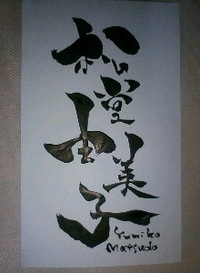 松堂
由美子
Yumiko
Matsudo